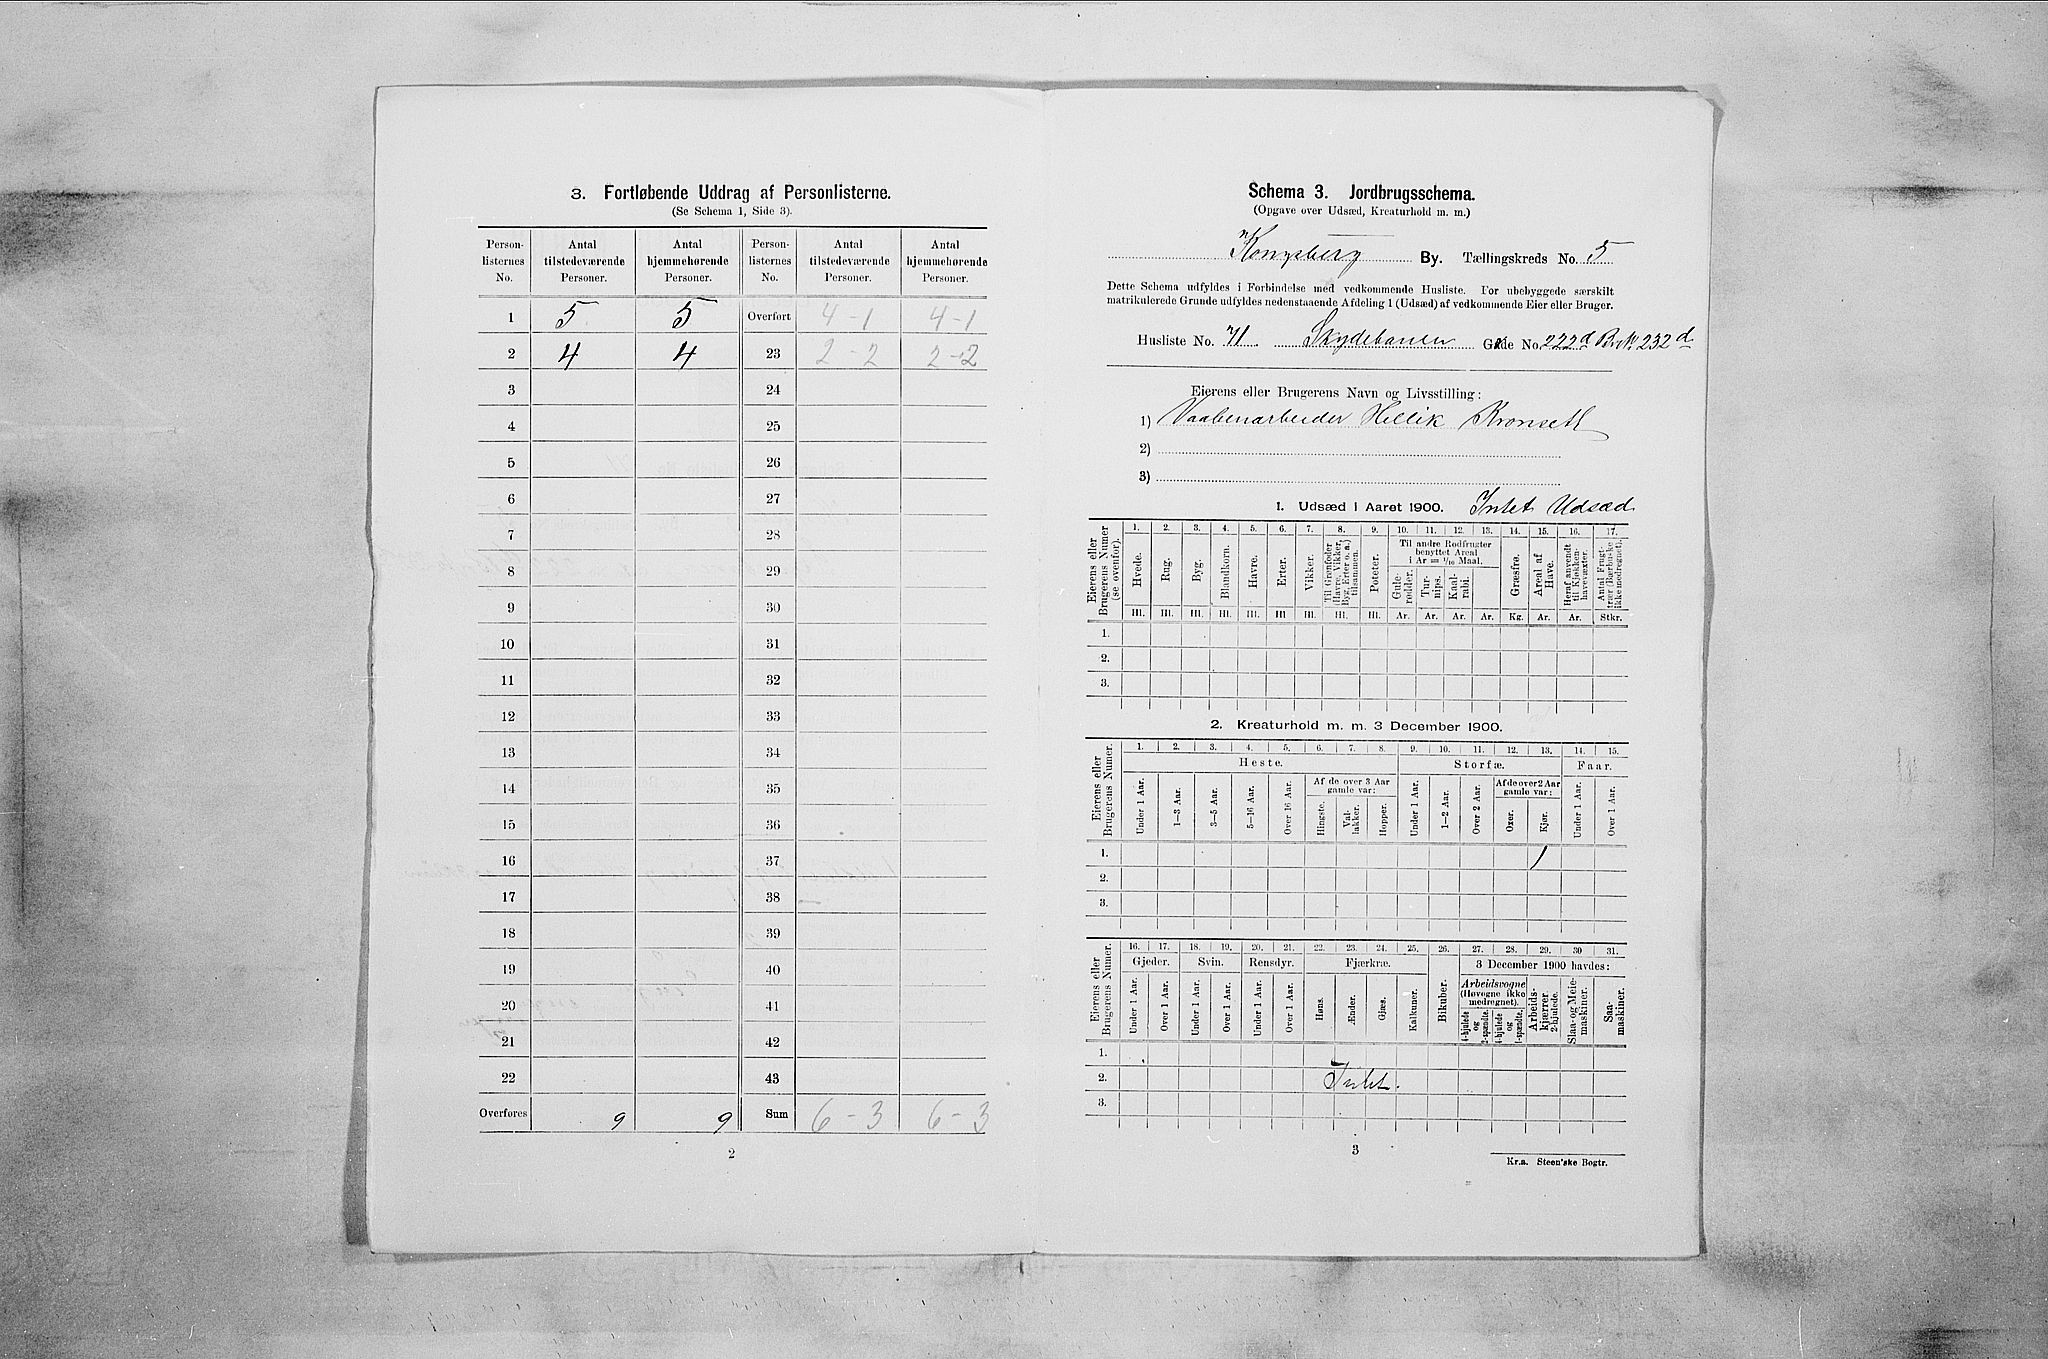 3. Fortløbende Uddrag af Personlisterne.
(Se Schema 1, Side 3).
Person-listernes No. Antal tilstedeværende Personer. Antal hjemmehørende Personer. Person-listernes No. Antal tilstedeværende Personer. Antal hjemmehørende Personer.
1 5 5 Overført 4-1 4-1
2 4 4 23 2-2 2-2
3 24
4 25
5 26
6 27
7 28
8 29
9 30
10 31
11 32
12 33
13 34
14 35
15 36
16 37
17 38
18 39
19 40
20 41
21 42
22 43
Overføres 9 9 Sum 6-3 6-3
2
Schema 3. Jordbrugsschema.
(Opgave over Udsæd, Kreaturhold m. m.)
Kongsberg By. Tællingskreds No. 5
Dette Schema udfyldes i Forbindelse med vedkommende Husliste. For ubebyggede særskilt
matrikulerede Grunde udfyldes nedenstaaende Afdeling 1 (Udsæd) af vedkommende Eier eller Bruger.
Husliste No. 71 Skydebanen Gade No. 222d 232d
Eierens eller Brugerens Navn og Livsstilling:
1) Vaabenarbeider Hellik Kronseth
2)
3)
1. Udsæd i Aaret 1900. Intet Udsæd
Eierens eller Brugerens Numer (se ovenfor).
1. 2. 3. 4. 5. 6. 7. 8. 9. 10. 11. 12. 13. 14. 15. 16. 17.
Til andre Rodfrugter benyttet Areal i Ar = 1/10 Maal.
Hvede. Rug. Byg. Blandkorn. Havre. Erter. Vikker. Til Grønfoder (Havre, Vikker, Byg, Erter o. a.) tilsammen. Poteter. Gule-rødder. Tur-nips. Kaal-rabi. Græsfrø. Areal af Have. Heraf anvendt til Kjøkken-havevæxter. Antal Frugt-trær (Bærbuske ikke medregnet).
Hl. Hl. Hl. Hl. Hl. Hl. Hl. Hl. Hl. Ar. Ar. Ar. Ar. Kg. Ar. Ar. Stkr.
1.
2.
3.
2. Kreaturhold m. m. 3 December 1900.
Eierens eller Brugerens Numer.
1. 2. 3. 4. 5. 6. 7. 8. 9. 10. 11. 12. 13. 14. 15.
Heste. Storfæ. Faar.
Af de over 3 Aar gamle var: Af de over 2 Aar gamle var:
Under 1 Aar. 1—3 Aar. 3—5 Aar. 5—16 Aar. Over 16 Aar. Hingste. Val-lakker. Hopper. Under 1 Aar. 1—2 Aar. Over 2 Aar. Oxer. Kjør. Under 1 Aar. Over 1 Aar.
1. 1
2.
3.
Eierens eller Brugerens Numer.
16. 17. 18. 19. 20. 21. 22. 23. 24. 25. 26. 27. 28. 29. 30 31.
Gjeder. Svin. Rensdyr. Fjærkræ. Bikuber. 3 December 1900 havdes:
Arbeidsvogne (Høvogne ikke medregnet).
Under 1 Aar. Over 1 Aar. Under 1 Aar. Over 1 Aar. Under 1 Aar. Over 1 Aar. Høns. Ænder. Gjæs. Kalkuner. 4-hjulede og 2-spændte. 4-hjulede og 1-spændte. Arbeids-kjærrer 2-hjulede. Slaa- og Meie-maskiner. Saa-maskiner.
1.
2. Intet.
3.
3
Kr.a. Steen'ske Bogtr.